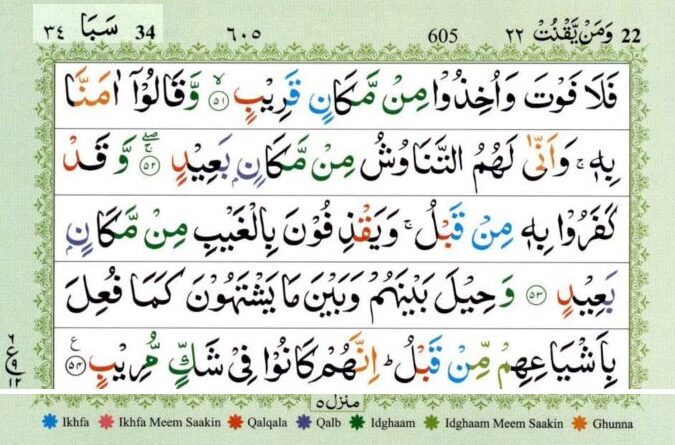 22 وَمَنْ يَّقْنُتْ ٢٢ 605 ٦٠٥ 34 سَبَا ٣٤
فَلَا فَوْتَ وَاُخِذُوْا مِنْ مَّكَانٍ قَرِيْبٍ ۙ‏﴿۵۱﴾ وَّقَالُوْۤا اٰمَنَّا
بِهٖ ۚ وَاَنّٰى لَهُمُ التَّنَاوُشُ مِنْ مَّكَانٍۭ بَعِيْدٍ ۖۚ‏﴿۵۲﴾ وَّقَدْ
كَفَرُوْا بِهٖ مِنْ قَبْلُ ۚ وَيَقْذِفُوْنَ بِالْغَيْبِ مِنْ مَّكَانٍۭ
بَعِيْدٍ ﴿۵۳﴾ وَحِيْلَ بَيْنَهُمْ وَبَيْنَ مَا يَشْتَهُوْنَ كَمَا فُعِلَ
بِاَشْيَاعِهِمْ مِّنْ قَبْلُ ؕ اِنَّهُمْ كَانُوْا فِىْ شَكٍّ مُّرِيْبٍ ﴿۵۴﴾ ع
٦
ع
٩
١٢
منزل ٥
Ikhfa Ikhfa Meem Saakin Qalqala Qalb Idghaam Idghaam Meem Saakin Ghunna